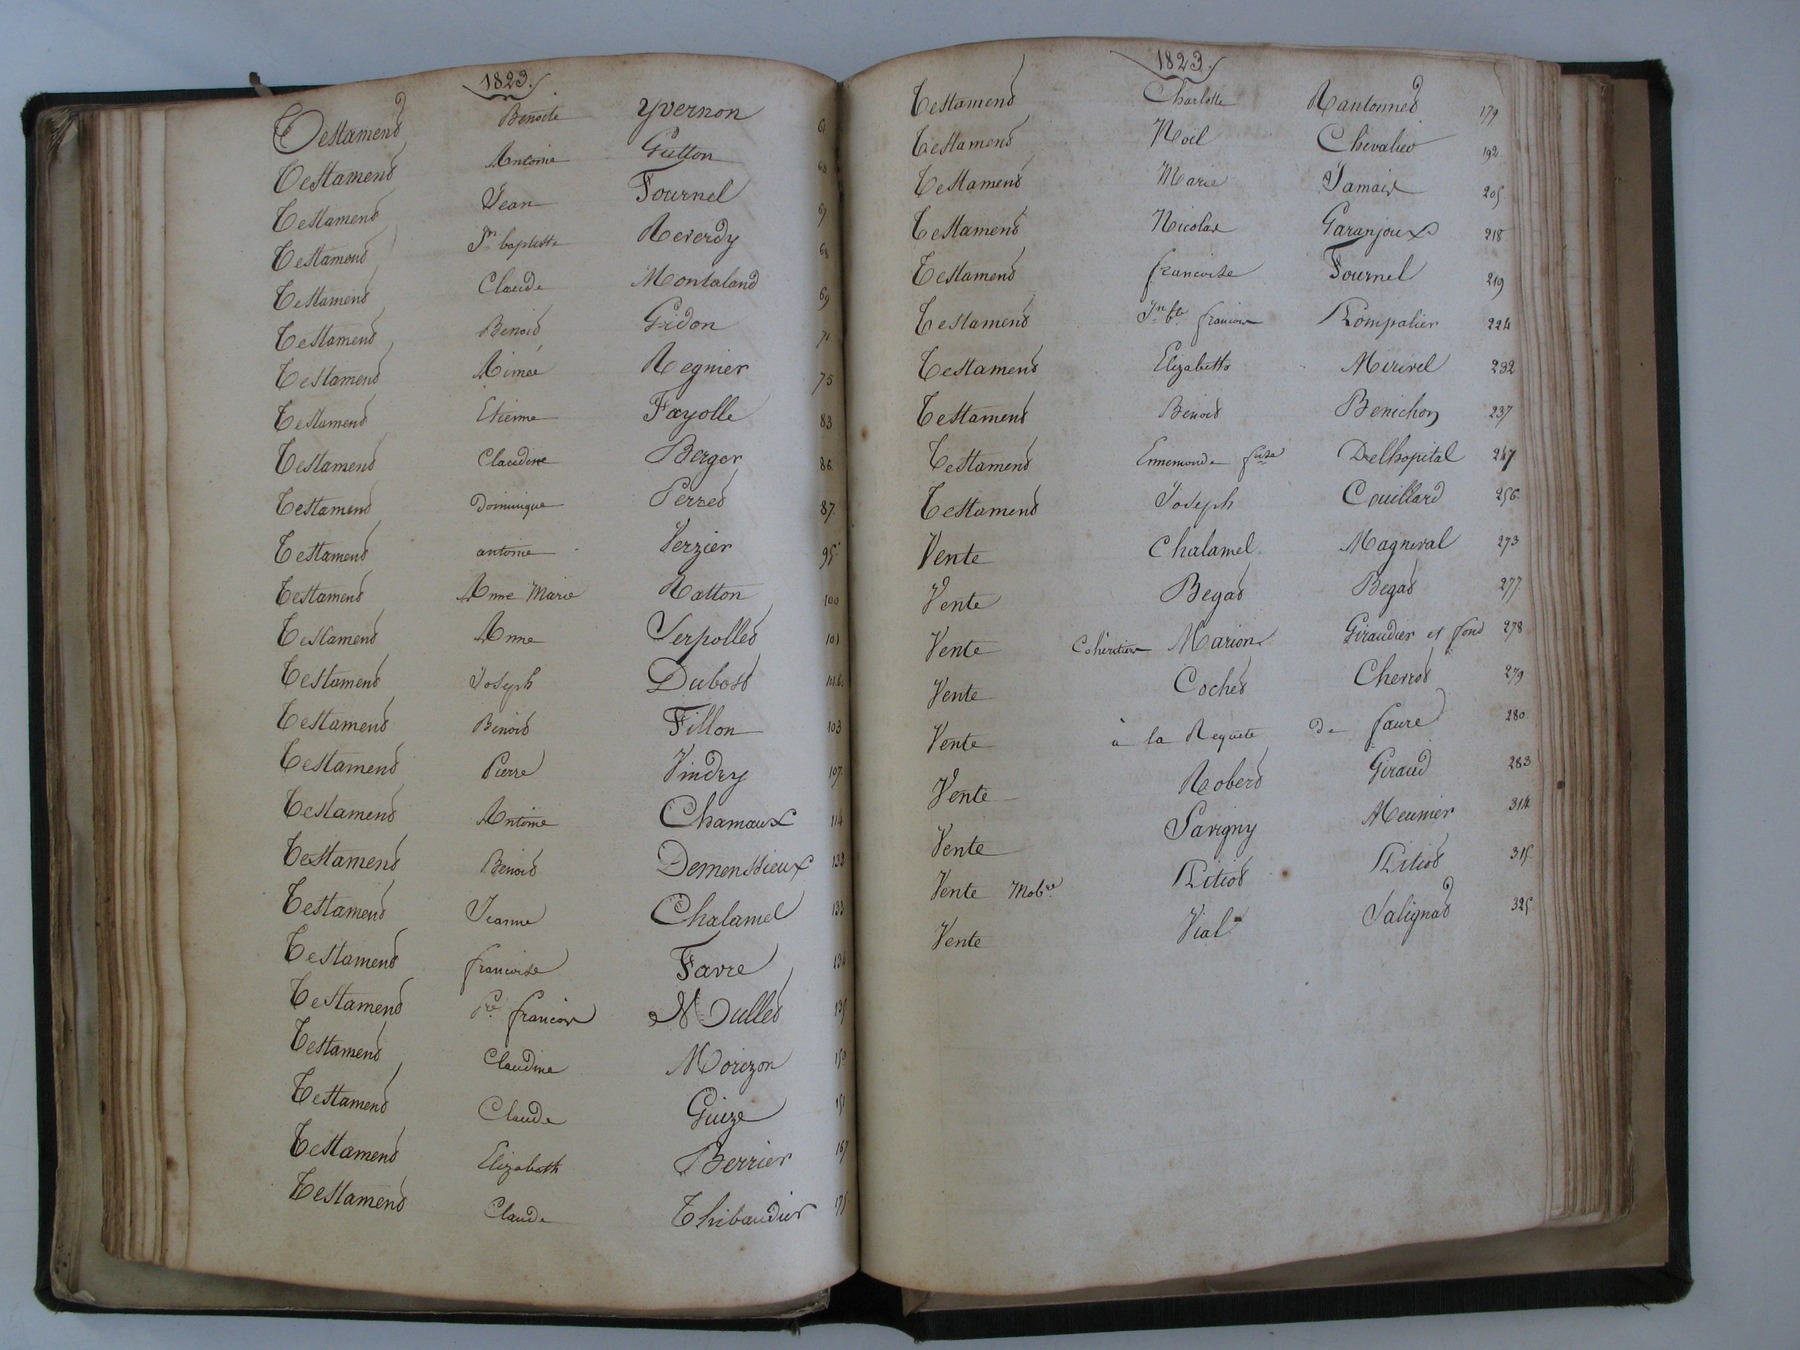 1823.
Testament Benoite Yvernon 61
Testament Antoine Gutton
Testament Jean Fournel 67
Testament Jn baptiste Reverdy 68
Testament Claude Montaland 69
Testament Benoit Gidon 71
Testament Aimée Regnier 75
Testament Etienne Fayolle 83
Testament Claudine Berger 86
Testament Dominique Perret 87
Testament antoine Verzier 95
Testament Anne Marie Ratton 100
Testament Anne Serpollet 101
Testament Joseph Dubost
Testament Benoit Fillon 103
Testament Pierre Vindry 107
Testament Antoine Chamaux 114
Testament Benoit Demenssieux
Testament Jeanne Chalamel 133
Testament francoise Favre
Testament Pre francois Mullet
Testament Claudine Morizon 150
Testament Claude Guize 151
Testament Elizabeth Berrier 167
Testament Claude Thibaudier 175
1823.
Testament Charlotte Rantonnet 179
Testament Noël Chevalier 192
Testament Marie Jamaix 205
Testament Nicolas Garanjoux 218
Testament francoise Fournel 219
Testament Jn bte francois Rompalier 224
Testament Elizabeth Mirivel 232
Testament Benoit Benichon 237
Testament Ennemonde fcoise Delhopital 247
Testament Joseph Couillard 256
Vente Chalamel Magneval 273
Vente Begat Begat 277
Vente Cohéritiers Marion Giraudier et font 278
Vente Cochet Cherrot 279
Vente à la Requete de faure 280
Vente Robert Giraud 283
Vente Savigny Meunier 314
Vente Mobre Ritiot Ritiot 315
Vente Vial Salignat 325